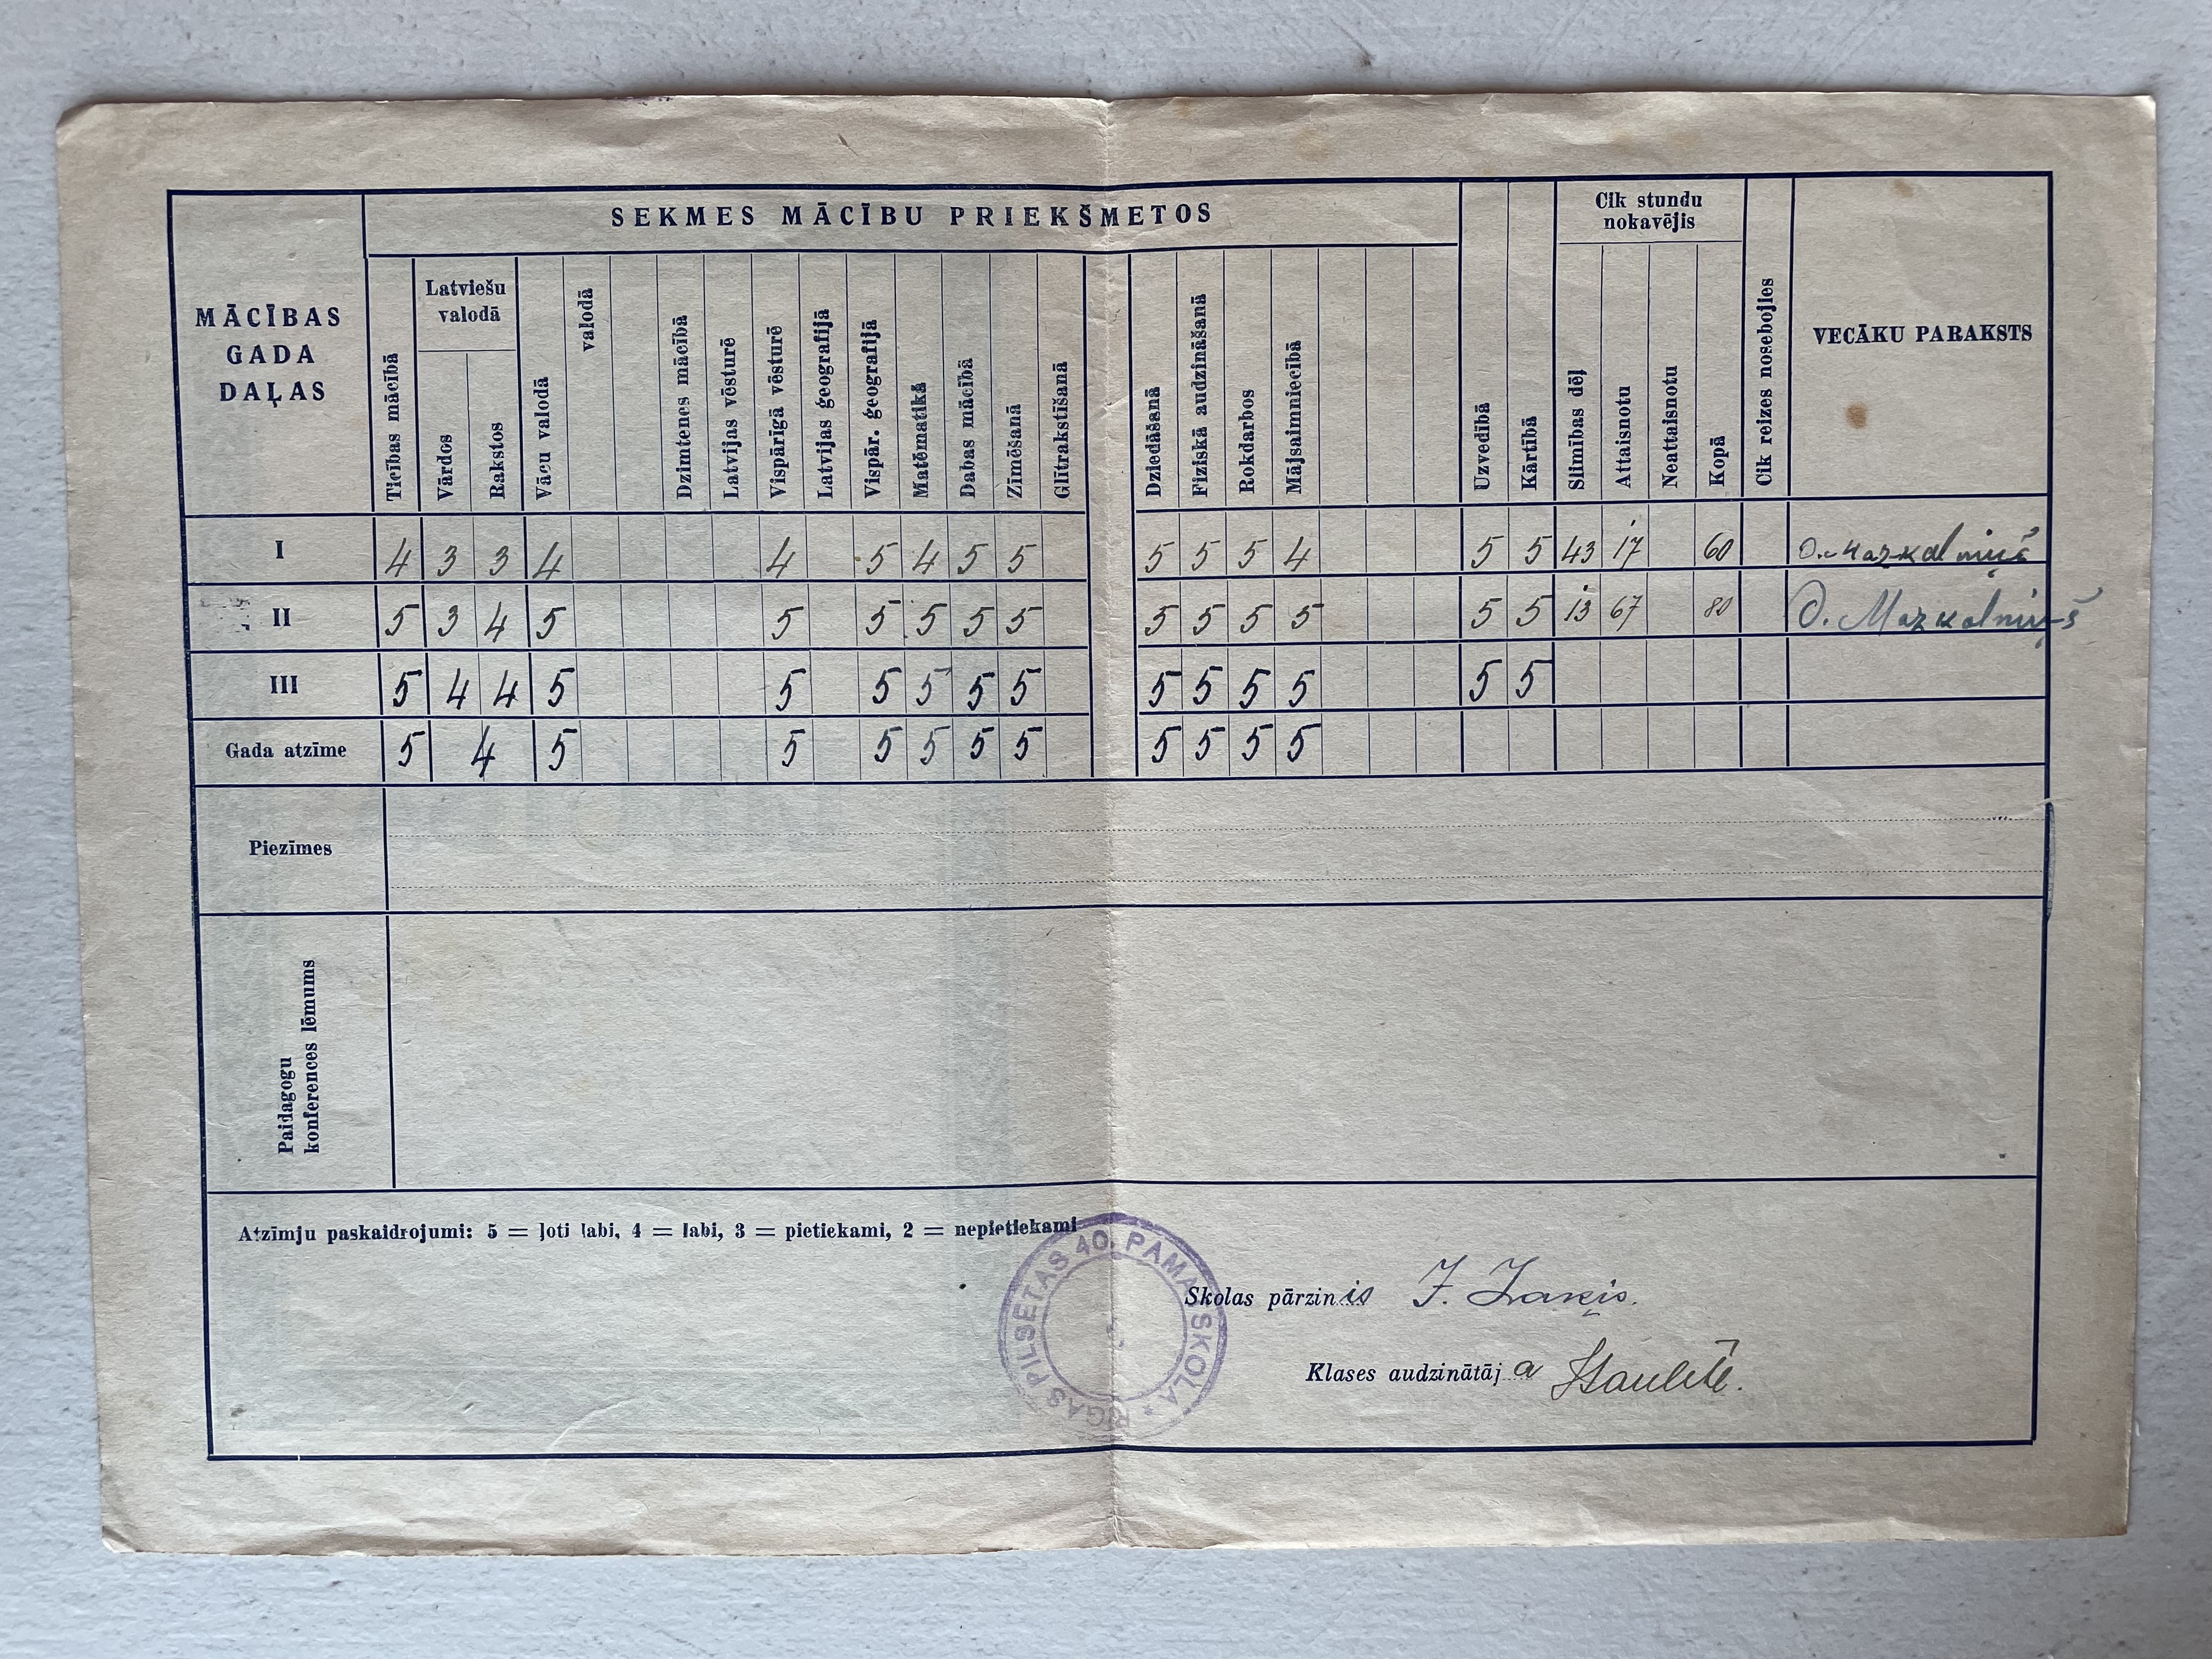 SEKMES MĀCĪBU PRIEKŠMETOS
Cik stundu
nokavējis
MĀCĪBAS
GADA
DAĻAS
Ticības mācībā
Latviešu
valodā
Vārdos
Rakstos
Vācu valodā
valodā
Dzimtenes mācībā
Latvijas vēsturē
Vispārīgā vēsturē
Latvijas ģeografijā
Vispār. ģeografijā
Matēmatikā
Dabas mācībā
Zīmēšanā
Glītrakstīšanā
Dziedāšanā
Fiziskā audzināšanā
Rokdarbos
Mājsaimniecībā
Uzvedībā
Kārtībā
Slimības dēļ
Attaisnotu
Neattaisnotu
Kopā
Cik reizes nosebojies
VECĀKU PARAKSTS
I 4 3 3 4 4 5 4 5 5 5 5 5 4 5 5 43 17 60 O. Mazkalniņš
II 5 3 4 5 5 5 5 5 5 5 5 5 5 5 5 13 67 80 O. Mazkalniņš
III 5 4 4 5 5 5 5 5 5 5 5 5 5 5 5
Gada atzīme 5 4 5 5 5 5 5 5 5 5 5 5
Piezīmes
Paidagogu
konferences lēmums
Atzīmju paskaidrojumi: 5 = ļoti labi, 4 = labi, 3 = pietiekami, 2 = nepietiekami
RĪGAS PILSĒTAS 40. PAMATSKOLA *
Skolas pārzinis
Klases audzinātāja